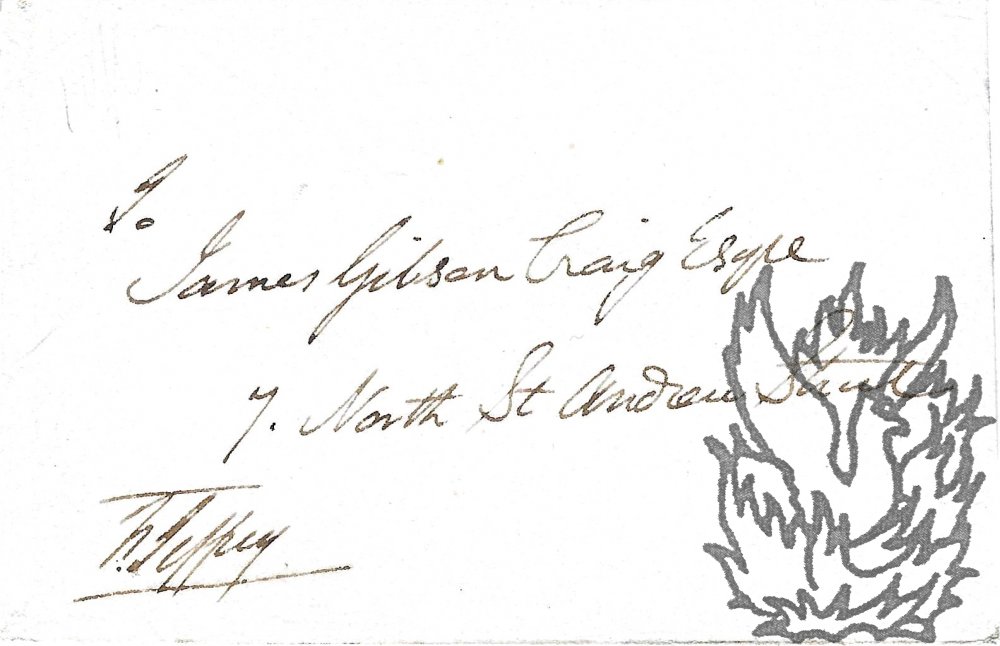 To
James Gibson Craig Esqre
7. North St Andrew Street
F. Jeffrey